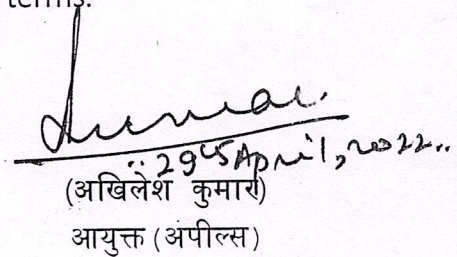 terms.
29th April, 2022..
(अखिलेश कुमार)
आयुक्त (अपील्स)